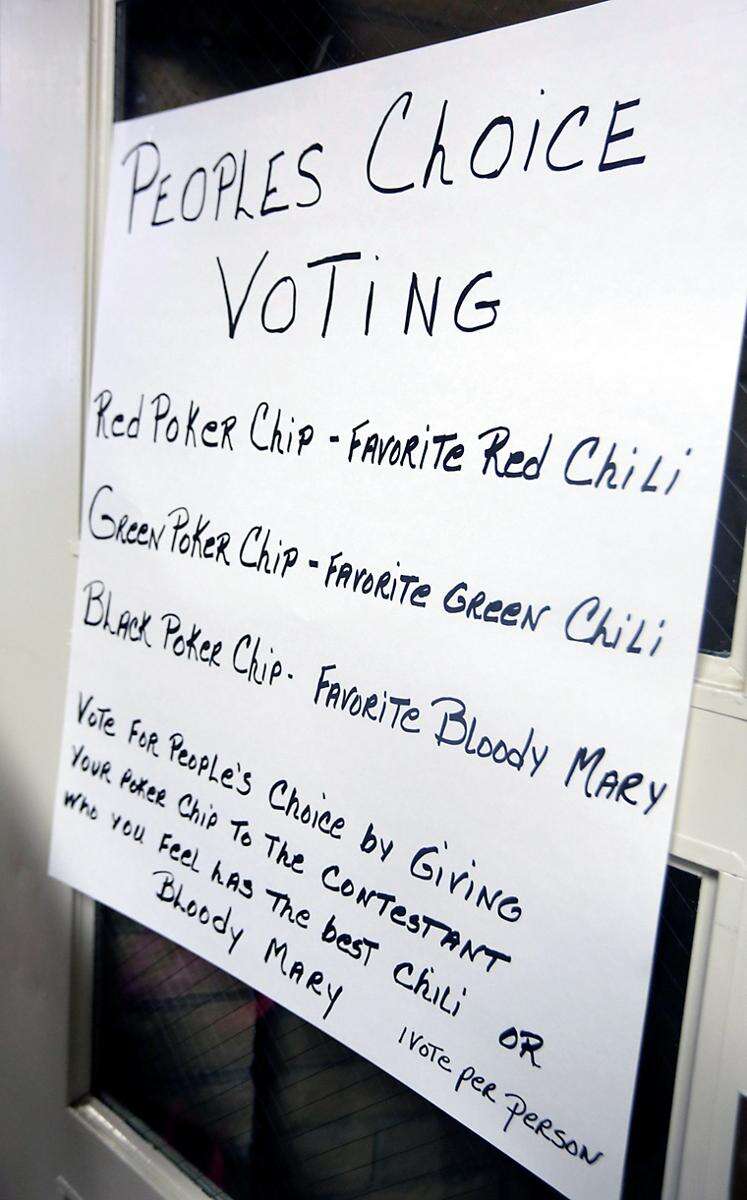 PEOPLES CHOICE
VOTING
Red Poker Chip - FAVORITE Red Chili
Green Poker Chip - FAVORITE GREEN Chili
Black Poker Chip - FAVORITE Bloody MARY
Vote for People's Choice by Giving
your poker chip to the contestant
who you feel has the best chili or
Bloody Mary
1 vote per person